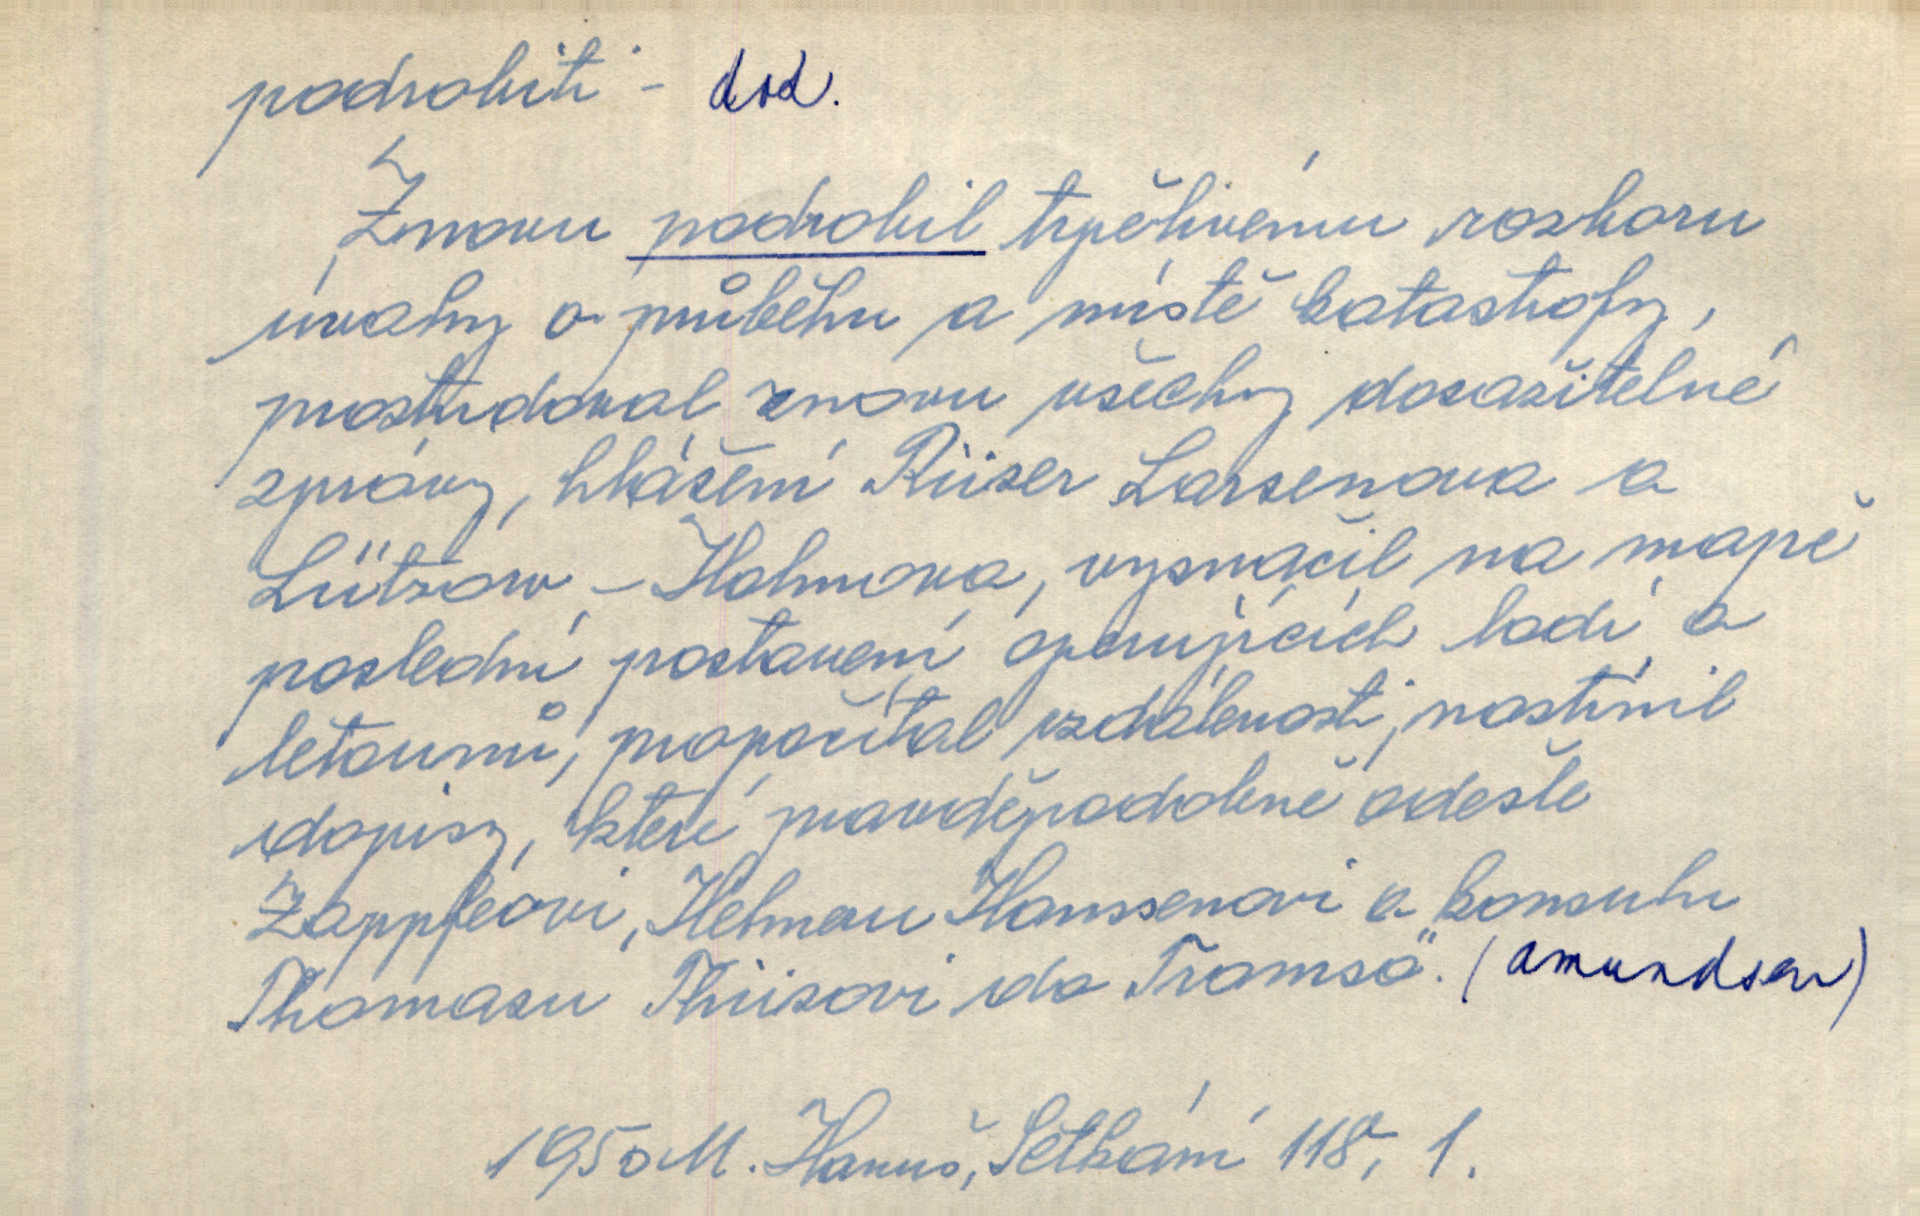 podrobiti - dod.
Znovu podrobil trpělivému rozboru
úvahy o průběhu a místě katastrofy,
prostudoval znovu všechny dosažitelné
zprávy, hlášení Riiser Larsenova a
Lützow-Holmova, vyznačil na mapě
poslední postavení operujících lodí a
letounů, propočítal vzdálenosti, nastínil
dopisy, které pravděpodobně odešle
Zappfeovi, Helmeru Hanssenovi a konsulu
Thomasu Thiisovi do Tromsö". (Amundsen)
1950 M. Hanuš, Setkání 118, 1.